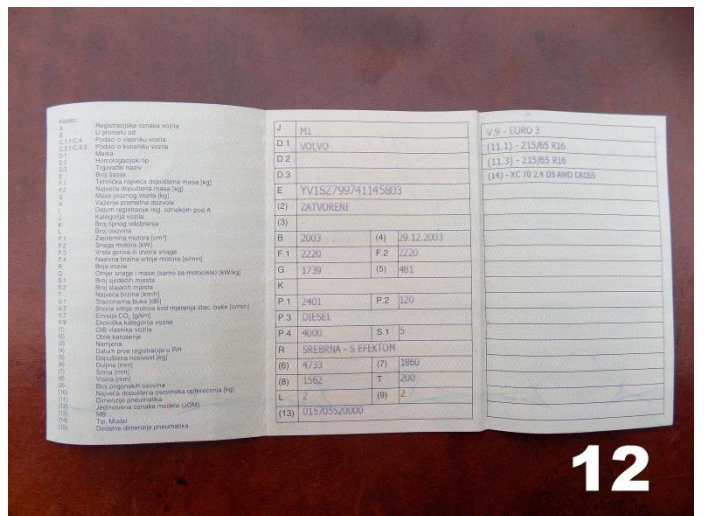 Kazalo
A Registracijska oznaka vozila
B U prometu od
C.1.1-C.4 Podaci o vlasniku vozila
Podaci o korisniku vozila
D.1 Marka
D.2 Homologacijski tip
D.3 Trgovački naziv
E Broj šasije
F.1 Tehnička najveća dopuštena masa [kg]
F.2 Najveća dopuštena masa [kg]
G Masa praznog vozila [kg]
H Važenje prometne dozvole
I Datum registracije reg. oznakom pod A
J Kategorija vozila
K Broj tipnog odobrenja
L Broj osovina
P.1 Zapremina motora [cm³]
P.2 Snaga motora [kW]
P.3 Vrsta goriva ili izvora snage
P.4 Nazivna brzina vrtnje motora [o/min]
R Boja vozila
Q Omjer snage i mase (samo za motocikle) [kW/kg]
S.1 Broj sjedećih mjesta
S.2 Broj stajaćih mjesta
T Najveća brzina [km/h]
U.1 Stacionarna buka [dB]
U.2 Brzina vrtnje motora kod mjerenja stac. buke [o/min]
V.7 Emisija CO₂ [g/km]
V.9 Ekološka kategorija vozila
(1) OIB vlasnika vozila
(2) Oblik karoserije
(3) Namjena
(4) Datum prve registracije u RH
(5) Dopuštena nosivost [kg]
(6) Duljina [mm]
(7) Širina [mm]
(8) Visina [mm]
(9) Broj pogonskih osovina
(10) Najveća dopuštena osovinska opterećenja [kg]
(11) Dimenzije pneumatika
(12) Jedinstvena oznaka modela (JOM)
(13) MB
(14) Tip, Model
(15) Dodatne dimenzije pneumatika
J M1
D.1 VOLVO
D.2
D.3
E YV1SZ799741145803
(2) ZATVORENI
(3) -
B 2003 (4) 29.12.2003
F.1 2220 F.2 2220
G 1739 (5) 481
K
P.1 2401 P.2 120
P.3 DIESEL
P.4 4000 S.1 5
R SREBRNA - S EFEKTOM
(6) 4733 (7) 1860
(8) 1562 T 200
L 2 (9) 2
(13) 015705520000
V.9 - EURO 3
(11.1) - 215/65 R16
(11.3) - 215/65 R16
(14) - XC 70 2.4 D5 AWD CROSS
12